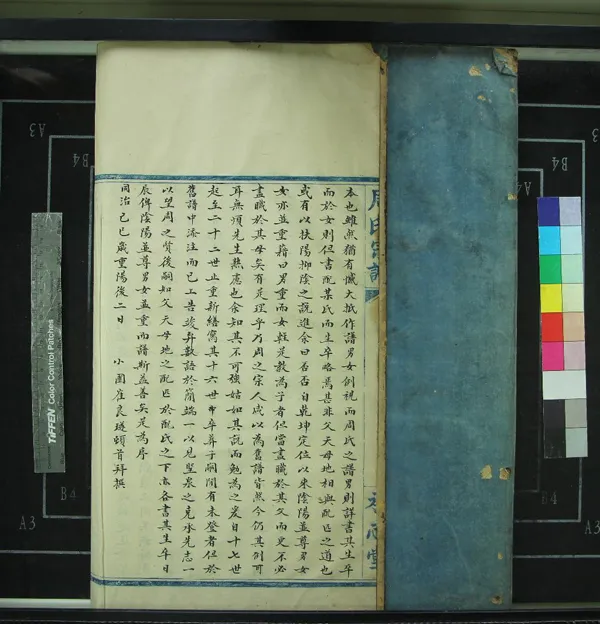 本也雖然猶有憾大抵作譜男女倒視而周氏之譜男則詳書其生卒
而於女則但書配某氏而生卒略焉其非父天母地相與配匹之道也
或有以扶陽抑陰之說進余曰否否自乾坤定位以來陰陽並尊男女
女亦並重藉曰男重而女輕是教為子者但當盡職於其父而更不必
盡職於其母矣有是理乎乃周之宗人咸以為舊譜皆然今仍其例可
耳無煩先生熟慮也余知其不可強姑如其說而勉為之爰自十七世
起至二十二世止重新繕寫其十六世中卒葬子嗣間有未登者但於
舊譜中添注而已工告竣弁數語於簡端一以見堅泉之克承先志一
以望周之賢後嗣如父天母地之配匹於配氏之下亦各書其生卒日
辰俾陰陽並尊男女並重而譜斯益善矣是為序
同治己巳歲重陽後二日
小圃崔良璲頓首拜撰
周氏宗譜
TIFFEN Color Control Patches
A3
B4
A3
B4
A3
B4
A3